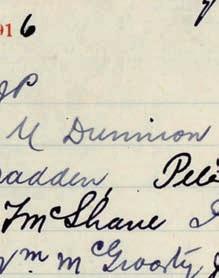 916
JP
U Dunnion
adden, Pete
McShane
Wm McGroarty,